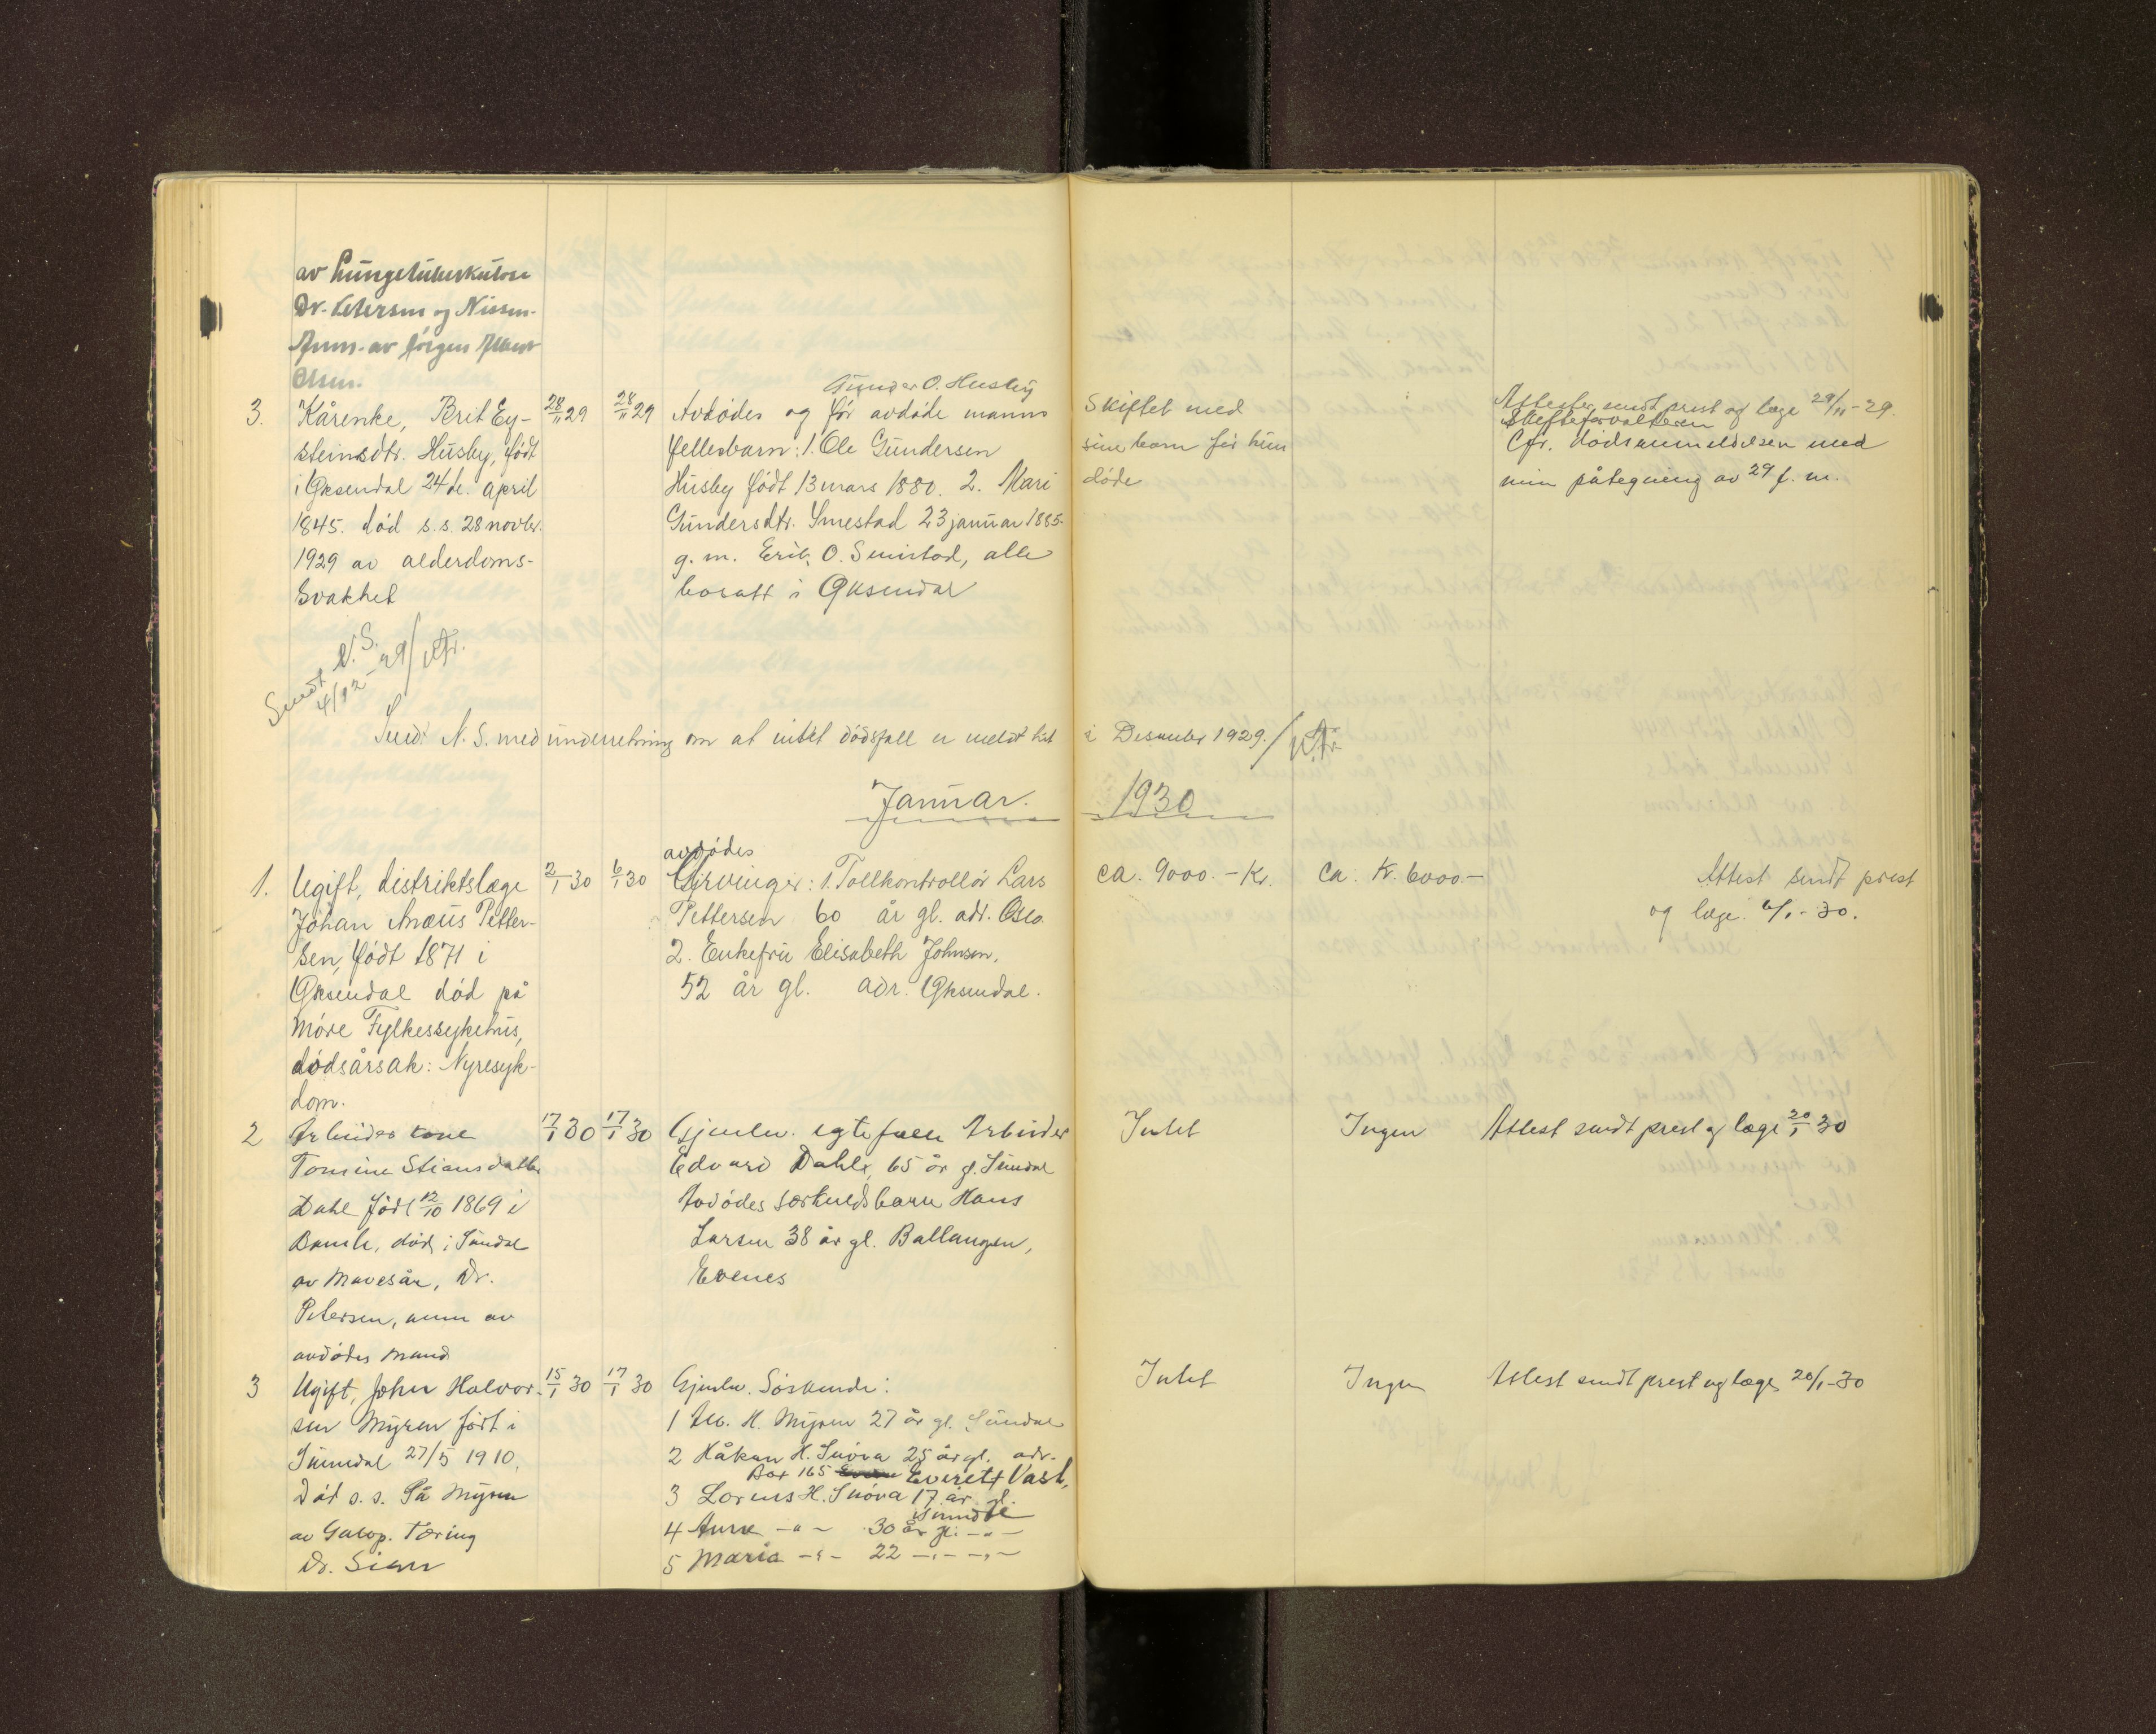 av Lungetuberkulose
Dr. Petersen og Nissen.
Anm. av Jörgen Albert
Olsen.
3. Kårenke, Brit Ey-
steinsdtr. Husby, født
i Øksendal 24de. april
1845. död s.s. 28 novbr.
1929 av alderdoms-
svakhet
28/11 29
28/11 29
Gunder O. Husby
Avdödes og för avdöde manns
fellesbarn: 1. Ole Gundersen
Husby född 13 mars 1880. 2. Mari
Gundersdtr. Smestad 23 januar 1885.
g. m. Erik O. Smistad, alle
bosatt i Øksendal
Skiftet med
sine barn för hun
döde
Attester sendt prest og læge 29/11-29.
Skifteforvalteren
Cfr. dödsanmeldelsen med
min påtegning av 29 f. m.
Sendt N. S.
4/12-29/
Sendt N. S. med underretning om at intet dödsfall er meldt hit i Desember 1929./
Januar. 1930
1. Ugift, distriktslæge
Johan Anæus Petter-
sen, født 1871 i
Øksendal död på
Möre Fylkessykehus,
dödsårsak: Nyresyk-
dom.
2/1 30
6/1 30
avdödes
Gjrvinger: 1. Tollkontrollör Lars
Pettersen 60 år gl. adr. Oslo
2. Enkefru Elisabeth Johnsen,
52 år gl. adr. Øksendal.
ca. 9000.- Kr.
ca. Kr. 6000.-
Attest sendt prest
og læge. 6/1-30.
2 Arbeider kone
Tomine Stiansdatter
Dahl född 12/10 1869 i
Bamle, död i Sundal
av Mavesår, Dr.
Petersen, anm av
avdödes mand
17/1 30
17/1 30
Gjenlev. egtefelle Arbeider
Edvard Dahle, 65 år g. Sundal
Avdödes særkuldsbarn Hans
Larsen 38 år gl. Ballangen,
Evenes
Intet
Ingen
Attest sendt prest og læge 20/1 30
3 Ugift, John Halvor-
sen Myren född i
Sunndal 27/5 1910.
Död s. s. På Myren
av Galop. Tæring
Dr.
15/1 30
17/1 30
Gjenlev. Söskende:
1 H. Myren 27 år gl. Sundal
2 Håkon H. Snöva 25 år gl. adr.
Box 165 Everett Vash,
3 Lorents H. Snöva 17 år gl.
Sunndal
4 Anne -"- 30 år gl. -"-
5 Maria -"- 22 -"- -"-
Intet
Ingen
Attest sendt prest og læge 20/1-30